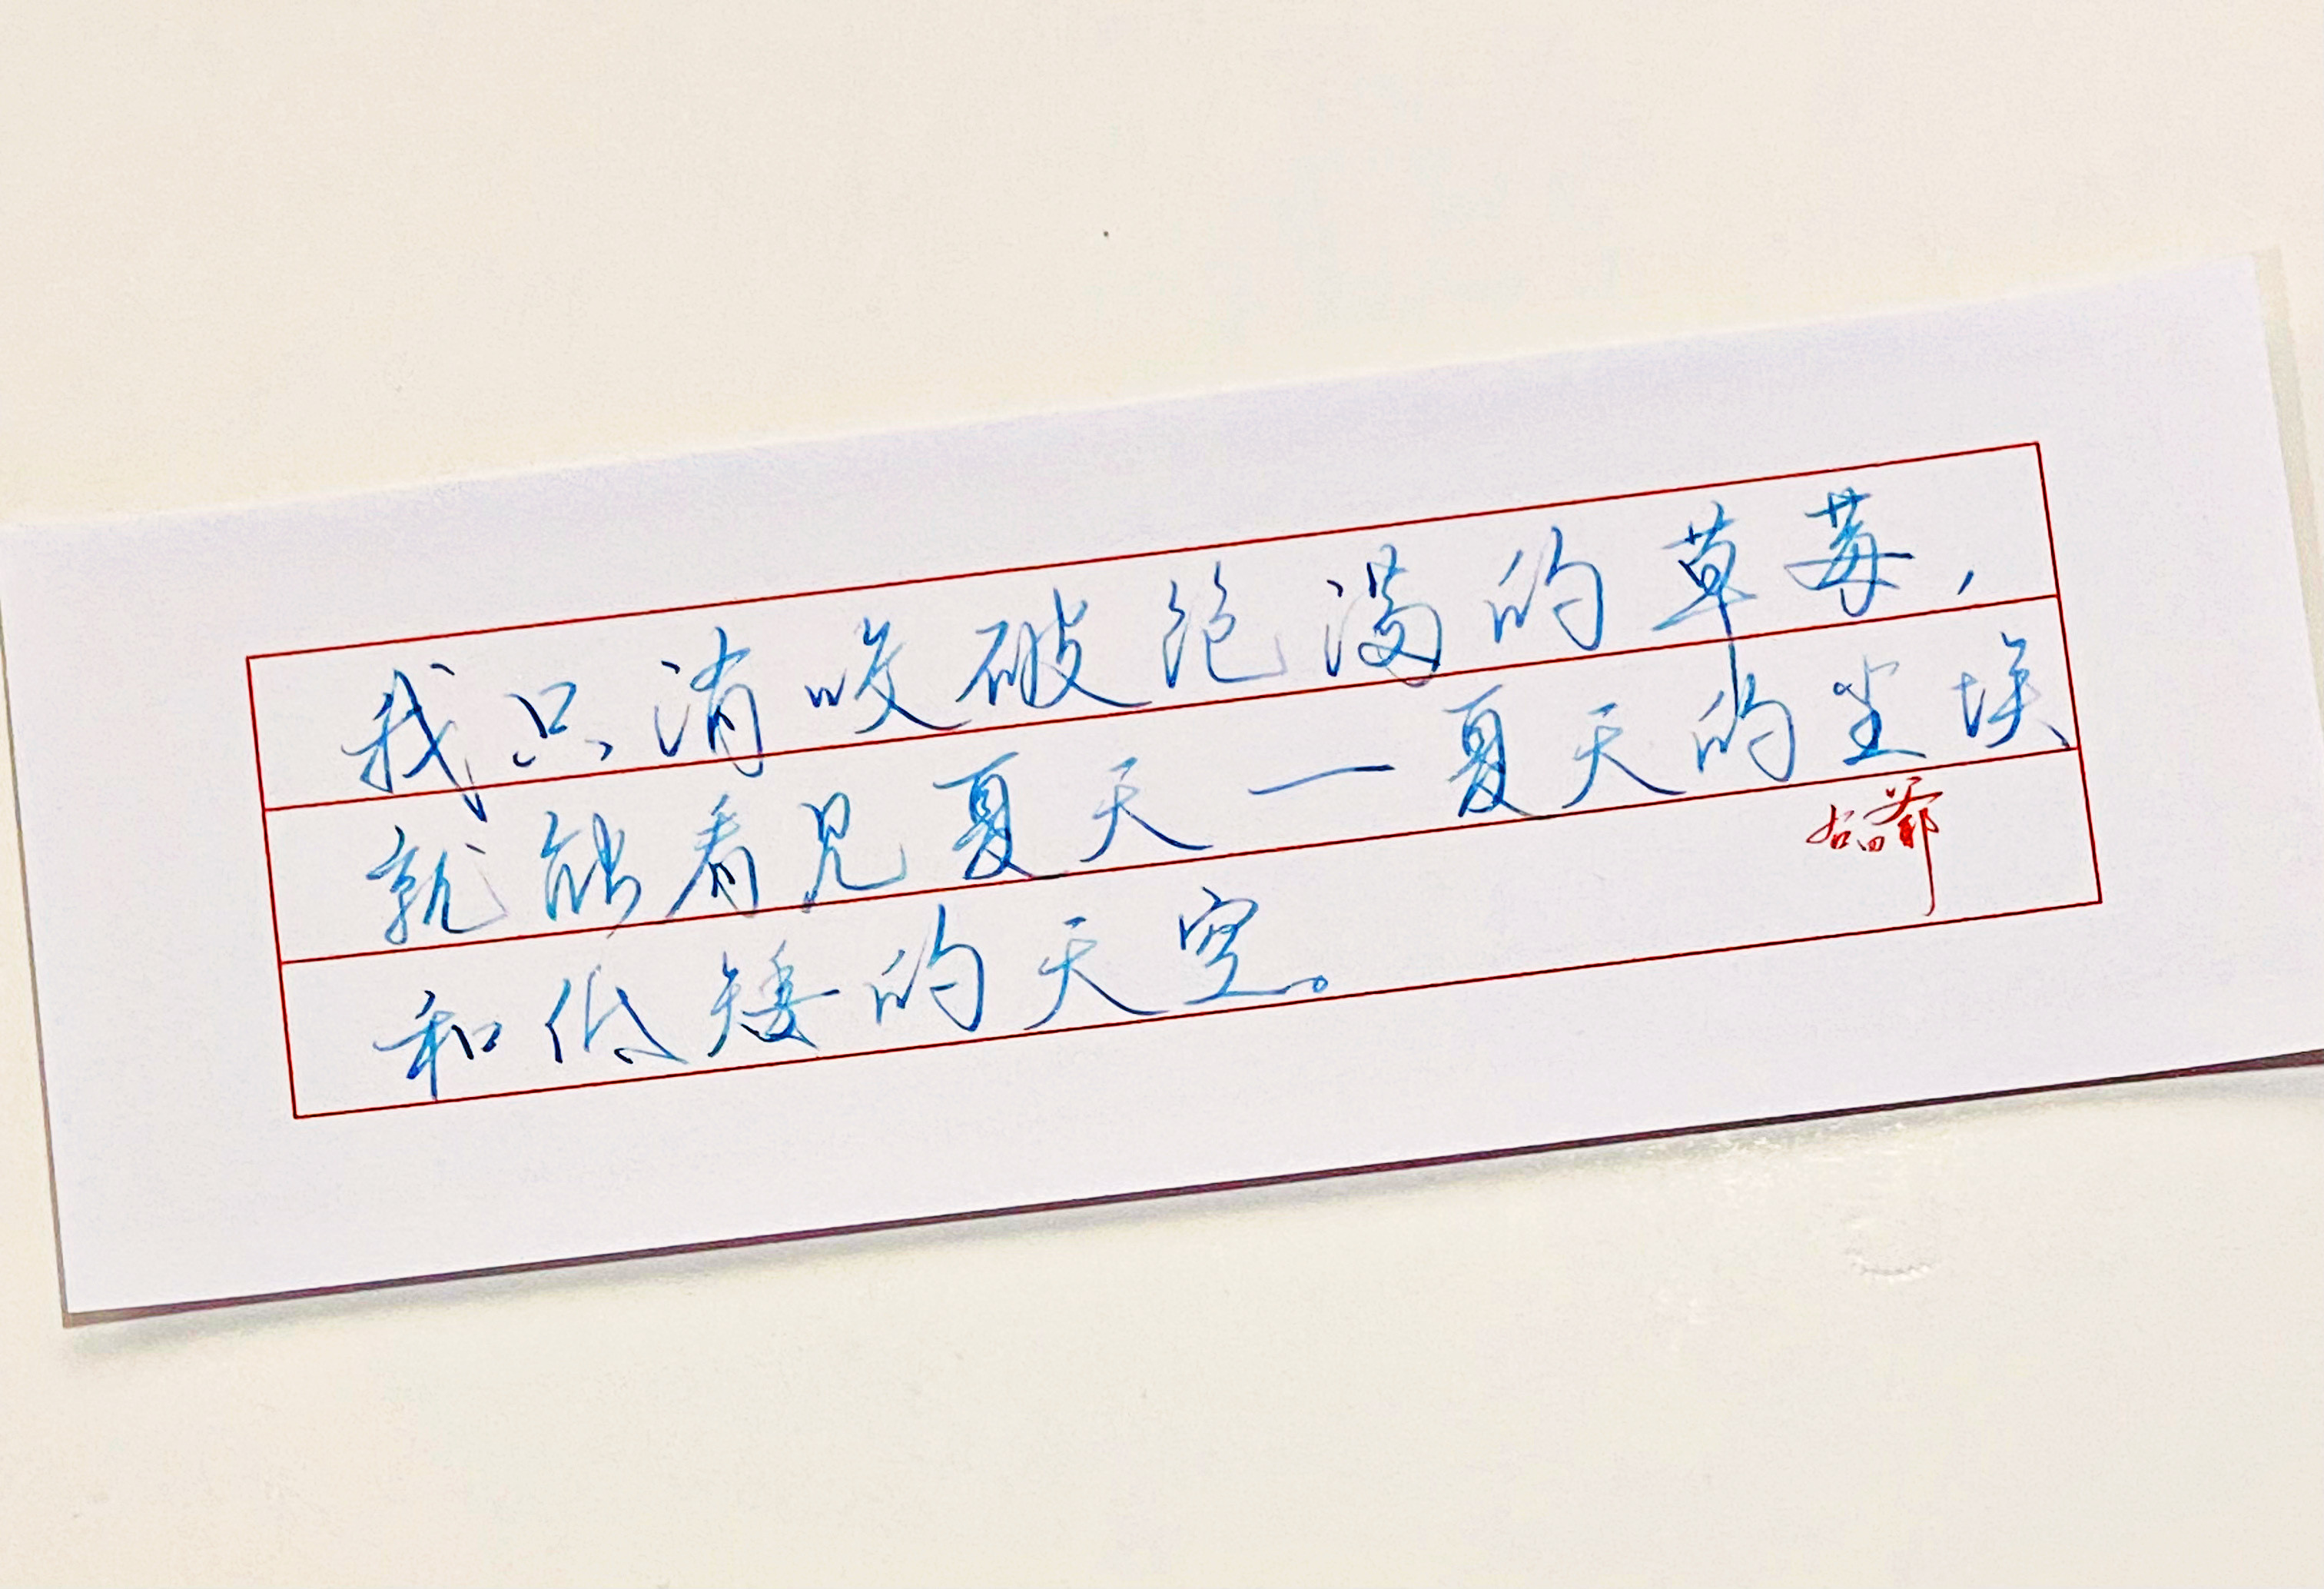 我只消咬破饱满的草莓，
就能看见夏天—夏天的尘埃
和低矮的天空。